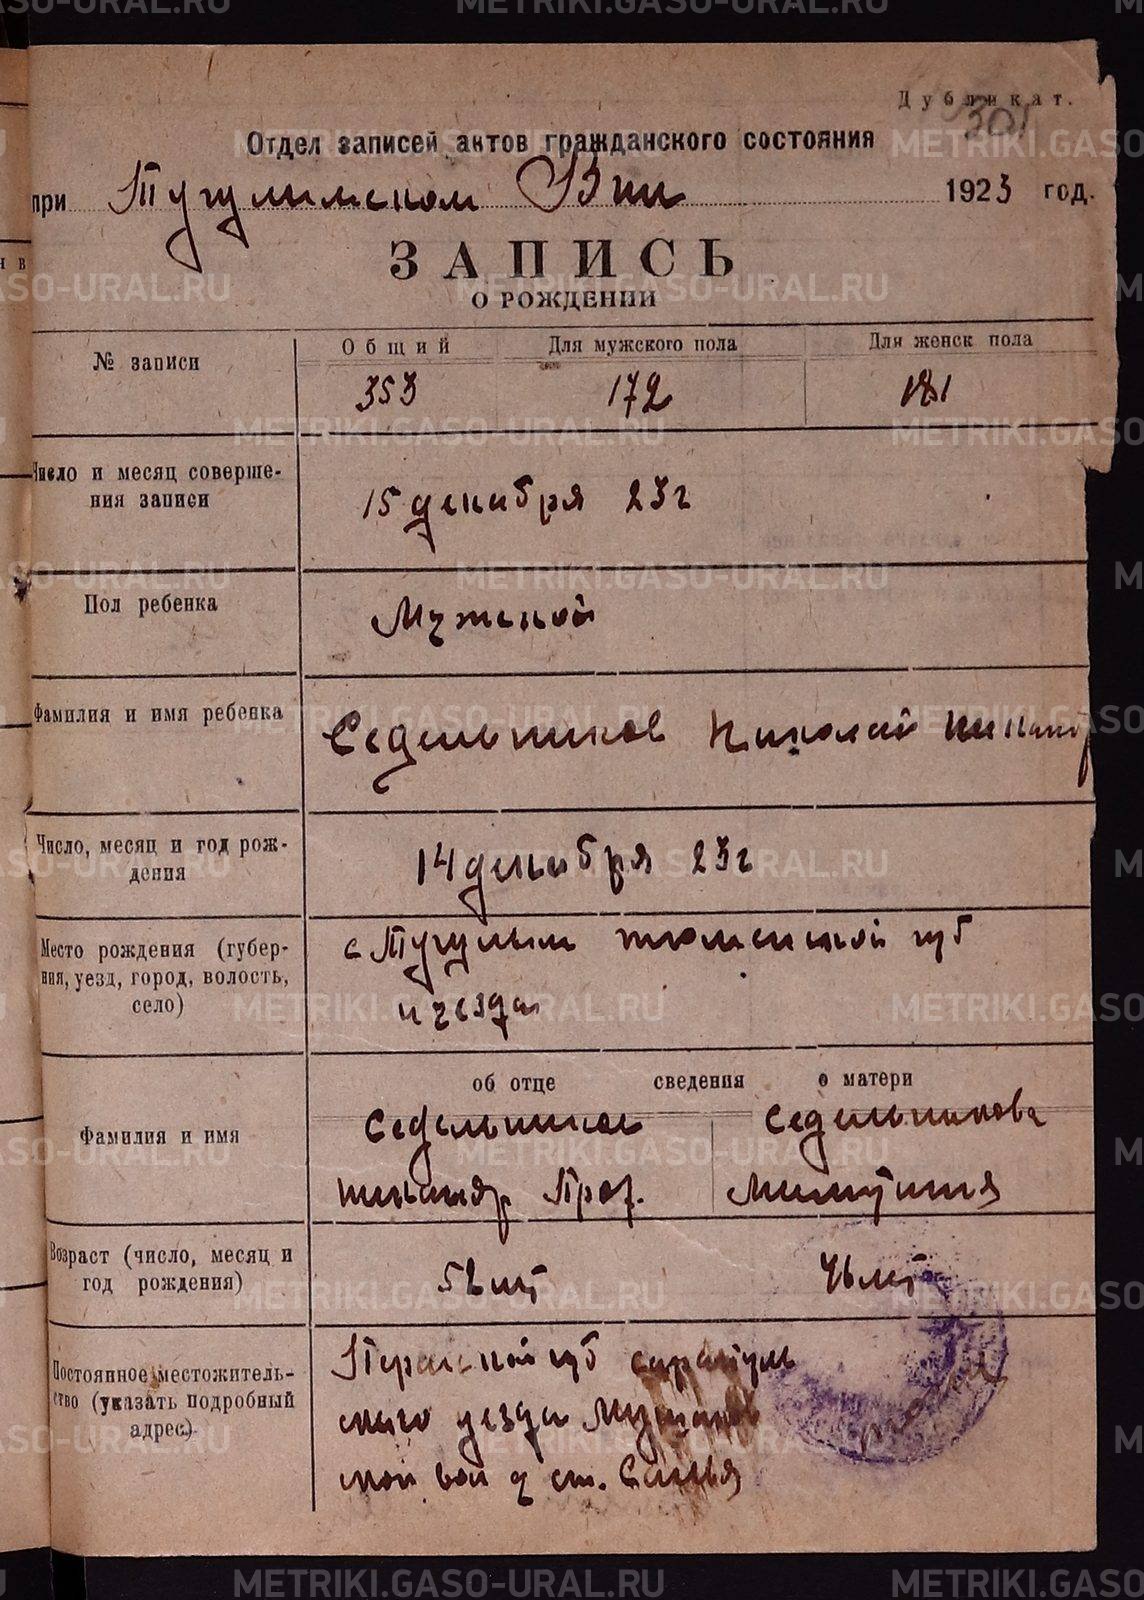 Дубликат.
301
Отдел записей актов гражданского состояния
при Тугулымском Вик 1923 год.
ЗАПИСЬ
О РОЖДЕНИИ
№ записи
Общий Для мужского пола Для женск пола
353 172 181
Число и месяц соверше-
ния записи
15 декабря 23 г
Пол ребенка
Мужской
Фамилия и имя ребенка
Седельников Николай Никанд
Число, месяц и год рож-
дения
14 декабря 23 г
Место рождения (губер-
ния, уезд, город, волость,
село)
с Тугулым тюменской губ
и уезда
об отце сведения о матери
Фамилия и имя
Седельников
Никандр. Проф.
Седельникова
Возраст (число, месяц и
год рождения)
52 лет
46 лет
Постоянное местожитель-
ство (указать подробный
адрес)
Пермской губ сарапуль
ского уезда
ской вол
METRIKI.GASO-URAL.RU